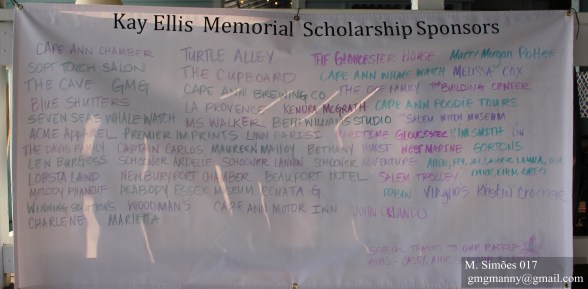 Kay Ellis Memorial Scholarship Sponsors
CAPE ANN CHAMBER TURTLE ALLEY THE GLOUCESTER HOUSE Marty Morgan Pottery
SOFT TOUCH SALON THE CUPBOARD CAPE ANN WHALE WATCH MELISSA COX
THE CAVE GMG CAPE ANN BREWING CO. THE FAMILY THE BUILDING CENTER
BLUE SHUTTERS LA PROVENCE KENDRA McGRATH CAPE ANN FOODIE TOURS
SEVEN SEAS WHALE WATCH MS WALKER BETH WILLIAMS STUDIO SALEM WITCH MUSEUM
ACME APPAREL PREMIER IMPRINTS LYNN PARISI MARITIME GLOUCESTER KIM SMITH
THE DAVIS FAMILY CAPTAIN CARLOS MAUREEN MALLOY BETHANY HURST WEST MARINE
LEN BURGESS SCHOONER ARDELLE SCHOONER LANNON SCHOONER ADVENTURE
LOBSTA LAND NEWBURYPORT CHAMBER BEAUPORT HOTEL SALEM TROLLEY
PEABODY ESSEX MUSEUM RENATA G VIRGILIOS KRISTIN CROCKER
WINNING SOLUTIONS WOODMAN'S CAPE ANN MOTOR INN JOHN ORLANDO
CHARLENE MARIETTA
SPECIAL THANKS TO OUR
M. Simões 017
gmgmanny@gmail.com